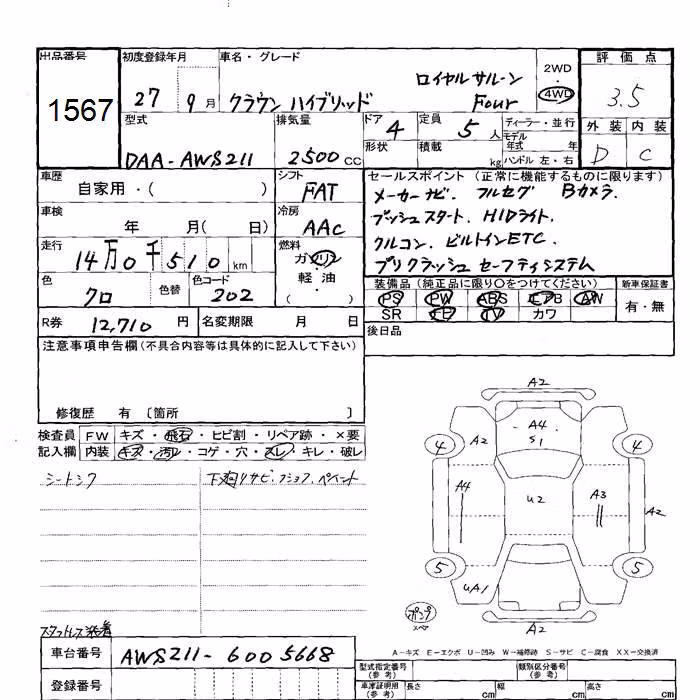 出品番号 初度登録年月 車名・グレード 評価点
1567
27 9月 クラウン ハイブリッド ロイヤルサルーン Four 2WD 4WD 3.5
型式 排気量 ドア 定員 ディーラー・並行 外装 内装
DAA-AWS211 2500cc 4 5人 モデル年式 年式 D C
形状 積載 kg ハンドル 左・右
車歴 シフト セールスポイント (正常に機能するものに限ります)
自家用・( ) FAT メーカーナビ. フルセグ Bカメラ.
車検 冷房 プッシュスタート. HIDライト.
年 月( 日) AAC クルコン. ビルトインETC.
走行 燃料 プリクラッシュセーフティシステム
14万0千510km ガソリン
軽油
( )
色 色替 色コード 装備品 (純正品に限り○をつけてください) 新車保証書
クロ 202 PS PW ABS エアB AW 有・無
SR TV カワ
R券 12,710円 名変期限 月 日 後日品
注意事項申告欄(不具合内容等は具体的に記入して下さい)
修復歴 有 〔箇所 〕
検査員 FW キズ・飛石・ヒビ割・リペア跡・×要
記入欄 内装 キズ・汚レ・コゲ・穴・スレ・キレ・破レ
シートシワ 下廻りサビ.
A2
A4
S1
A2
4 4
A4 U2 A3 A2
5 5
UA1
A2
スタットレス装着
A-キズ E-エクボ U-凹み W-補修跡 S-サビ C-腐食 XX-交換済
車台番号 AWS211-6005668
型式指定番号(参考) 類別区分番号(参考)
登録番号 車庫証明用(参考) 長さ cm 幅 cm 高さ cm